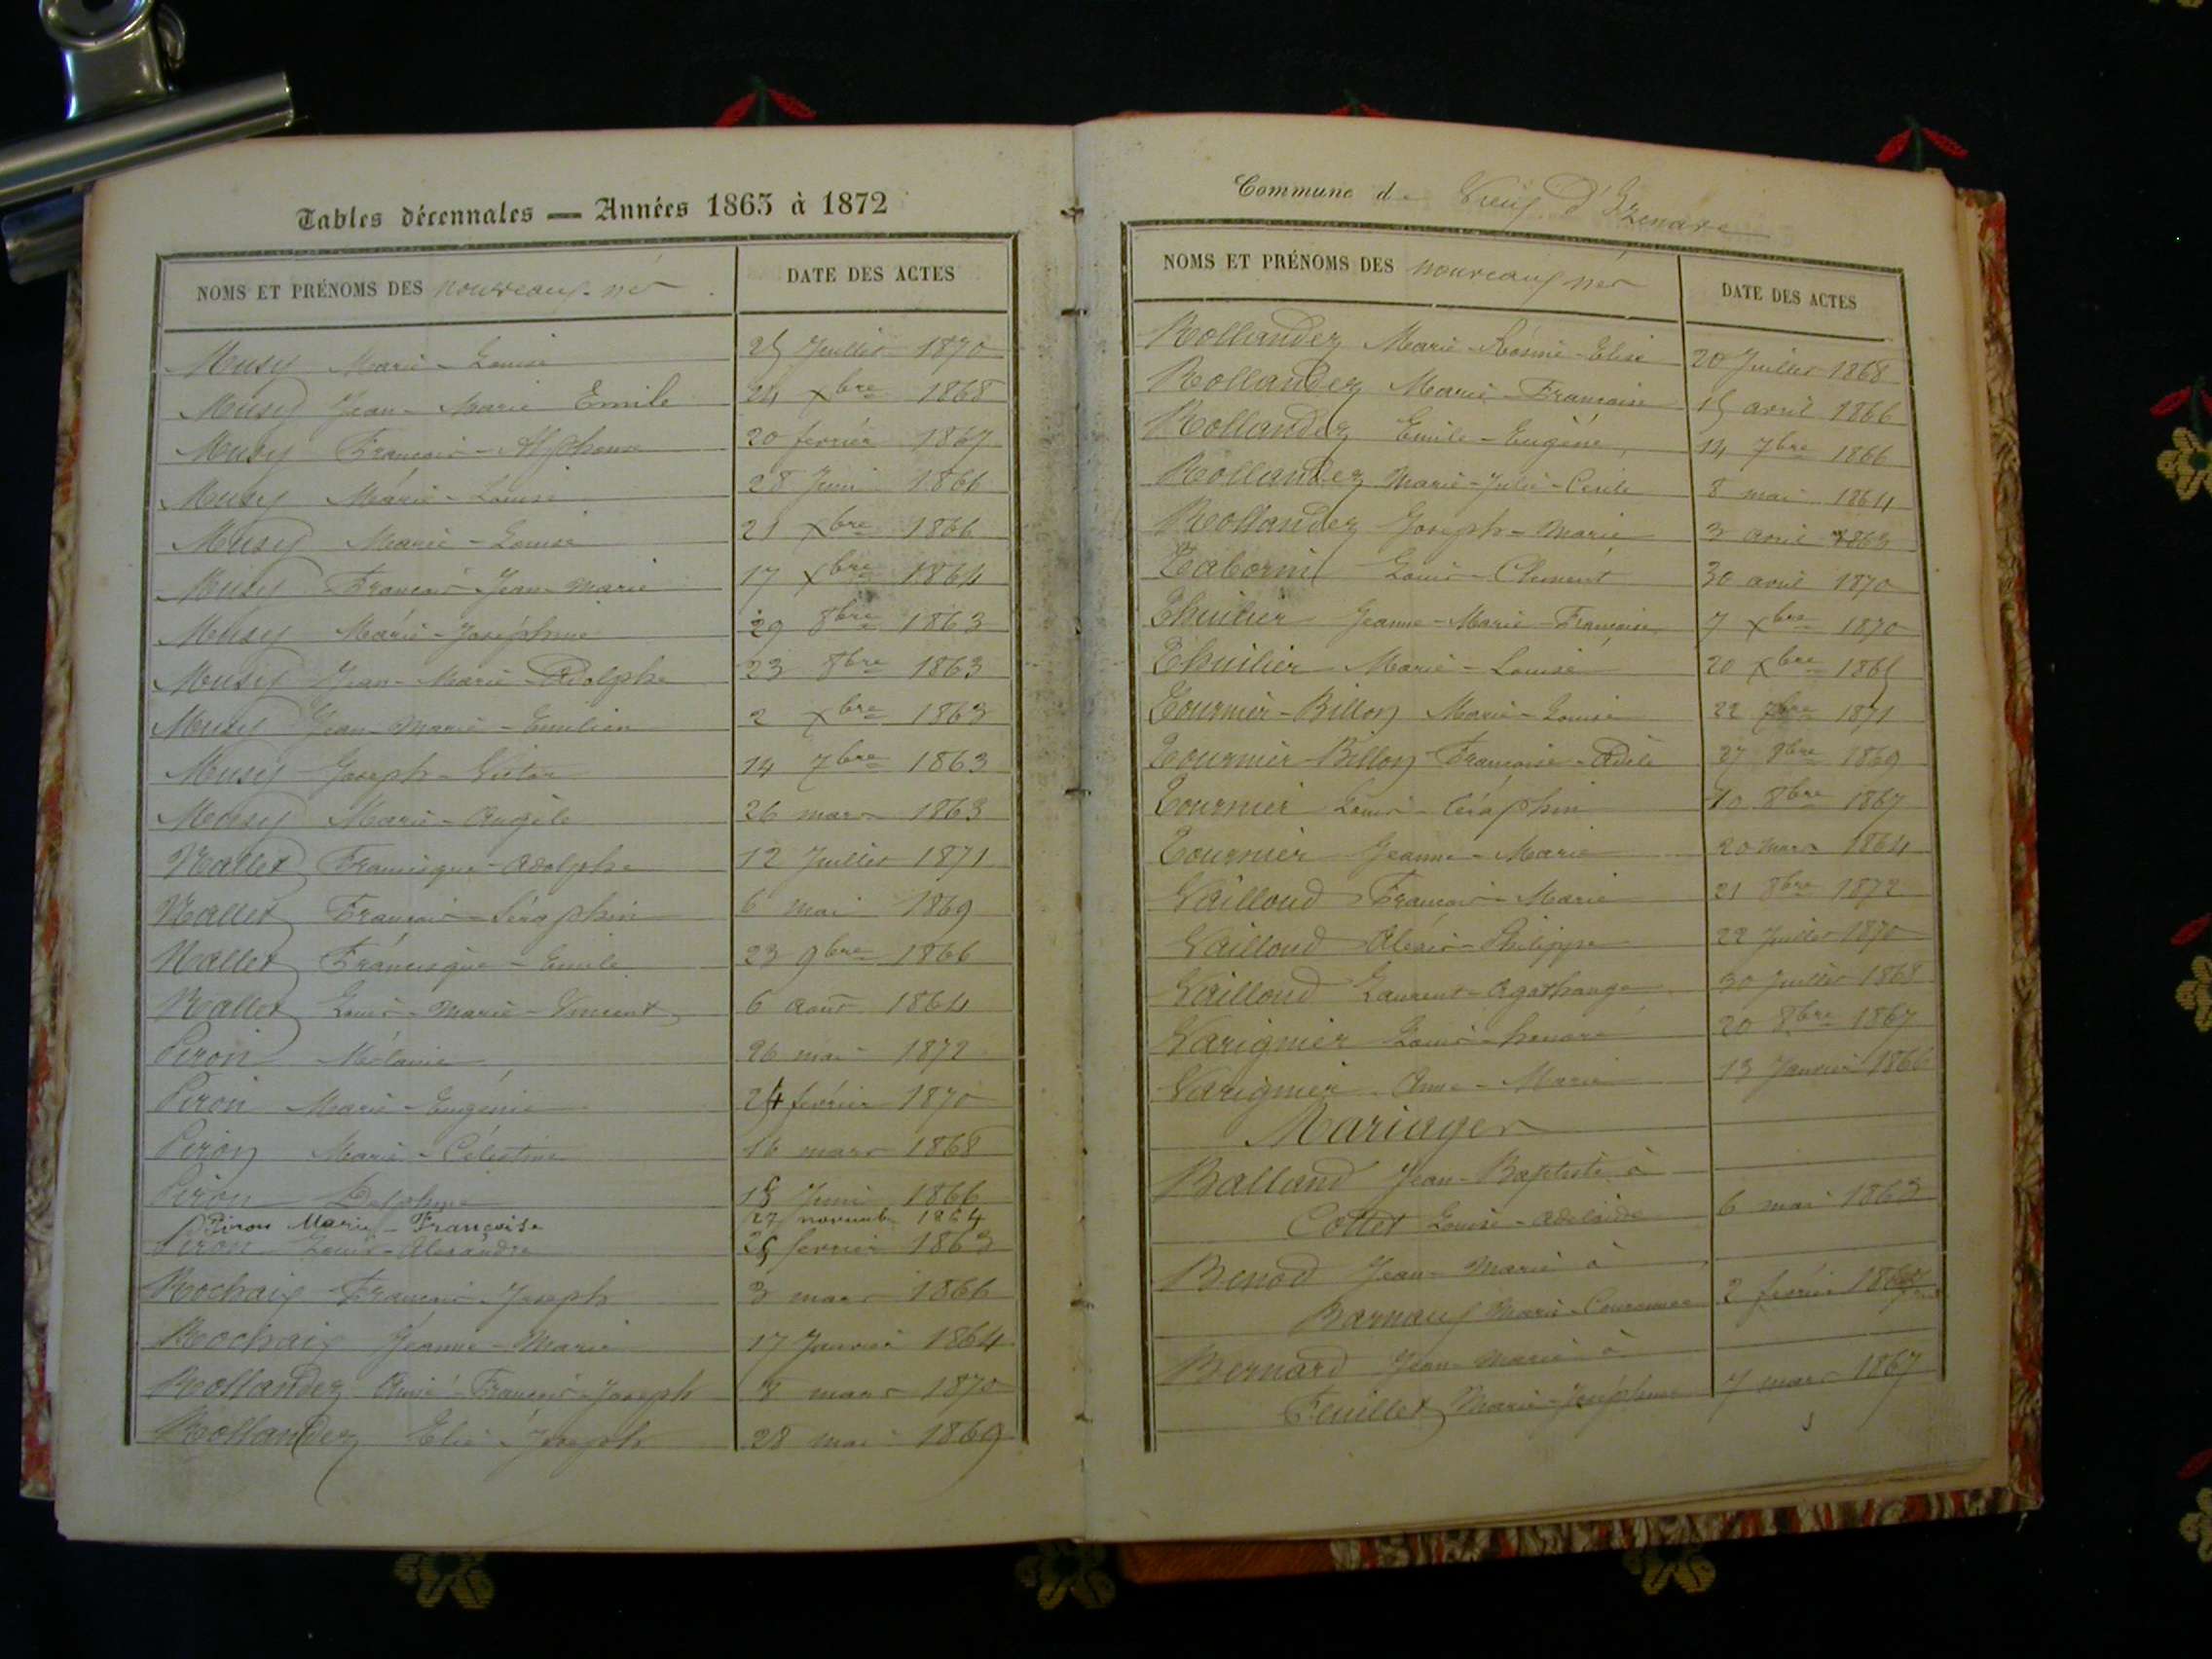 Tables décennales — Années 1863 à 1872
NOMS ET PRÉNOMS DES nouveaux-nés DATE DES ACTES
Musy Marie-Louise 25 Juillet 1870
Musy Jean-Marie Emile 24 Xbre 1868
Musy François-Alphonse 20 fevrier 1867
Musy Marie-Louise 28 Juin 1866
Musy Marie-Louise 21 Xbre 1866
Musy François Jean-Marie 17 Xbre 1864
Musy Marie-Joséphine 29 8bre 1863
Musy Jean-Marie-Adolphe 23 8bre 1863
Musy Jean-Marie-Emilien 2 Xbre 1863
Musy Joseph-Victor 14 7bre 1863
Musy Marie-Angèle 26 mars 1863
Nallet Francisque-Adolphe 12 Juillet 1871
Nallet François-Séraphin 6 mai 1869
Nallet Francisque-Emile 23 9bre 1866
Nallet Louis-Marie-Vincent 6 août 1864
Piron Mélanie 26 mai 1872
Piron Marie-Eugénie 24 février 1870
Piron Marie-Célestine 16 mars 1868
Piron Delphine Juin 1866
Piron Marie-Françoise 27 novemb 1864
Piron Louis-Alexandre 25 fevrier 1863
Rochaix François-Joseph 3 mars 1866
Rochaix Jeanne-Marie 17 Janvier 1864
Rollandez Aimé-François-Joseph 8 mars 1870
Rollandez Elie-Joseph 28 mai 1869
Commune de Vieux D'Izenave
NOMS ET PRÉNOMS DES nouveaux nés DATE DES ACTES
Rollandez Marie-Noémie-Elise 20 Juillet 1868
Rollandez Marie-Françoise 15 avril 1866
Rollandez Emile-Eugène 14 7bre 1866
Rollandez Marie-Julie-Cécile 8 mai 1864
Rollandez Joseph-Marie 3 avril 1863
Tabornil Louis-Clément 30 avril 1870
Thuilier Jeanne-Marie-Françoise 7 Xbre 1870
Thuilier Marie-Louise 20 Xbre 1865
Tournier-Billon Marie-Louise 22 7bre 1871
Tournier-Billon Françoise-Adèle 27 8bre 1869
Tournier Louis-Céraphin 10 8bre 1867
Tournier Jeanne-Marie 20 mars 1864
Vailloud François-Marie 21 8bre 1872
Vailloud Alexis-Philippe 22 Juillet 1870
Vailloud Laurent-Agathange 30 Juillet 1868
Varignier Louis-honoré 20 8bre 1867
Varignier Anne-Marie 13 Janvier 1866
Mariages
Balland Jean-Baptiste à
Collet Louise-Adelaïde 6 mai 1863
Benod Jean-Marie à
Barnaux Marie-Couronnée 2 février
Bernard Jean-Marie à
Feuillet Marie-Joséphine 7 mars 1867